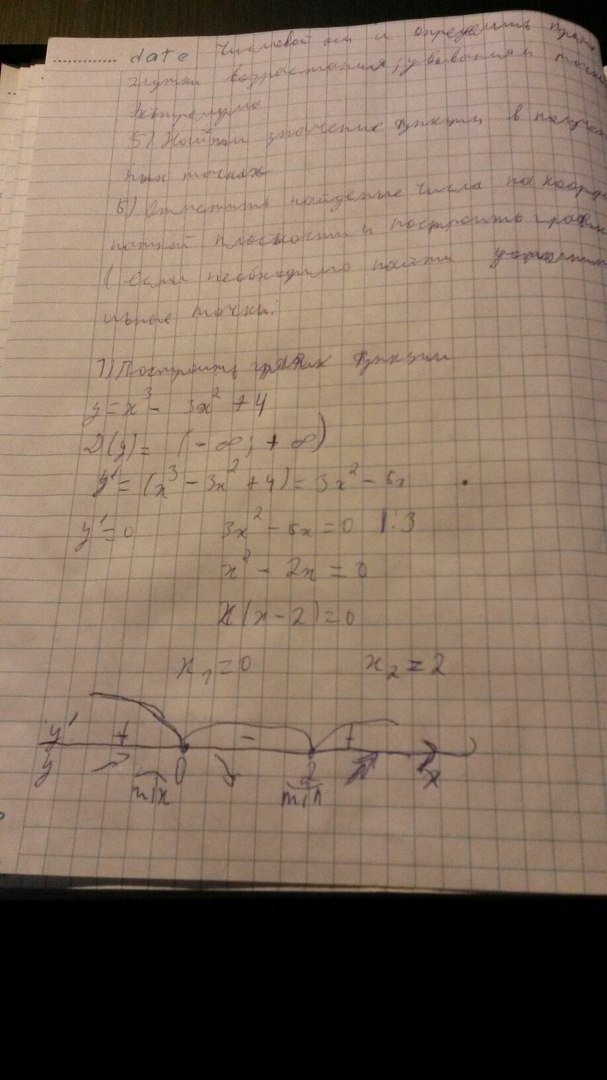 date числовой оси и определить
возрастания, убывания и точки
экстремума
5) Найти значение функции в
ных точках
6) Отметить найденые числа на коорди
натной плоскости и построить график
( если необходимо найти
льные точки.
1) Построить график функции
y = x³ - 3x² + 4
D(y) = (-∞; +∞)
y' = (x³ - 3x² + 4) = 3x² - 6x
y' = 0 3x² - 6x = 0 |:3
x² - 2x = 0
x(x-2)=0
x₁=0 x₂=2
y' + - +
y 0 2 x
max min